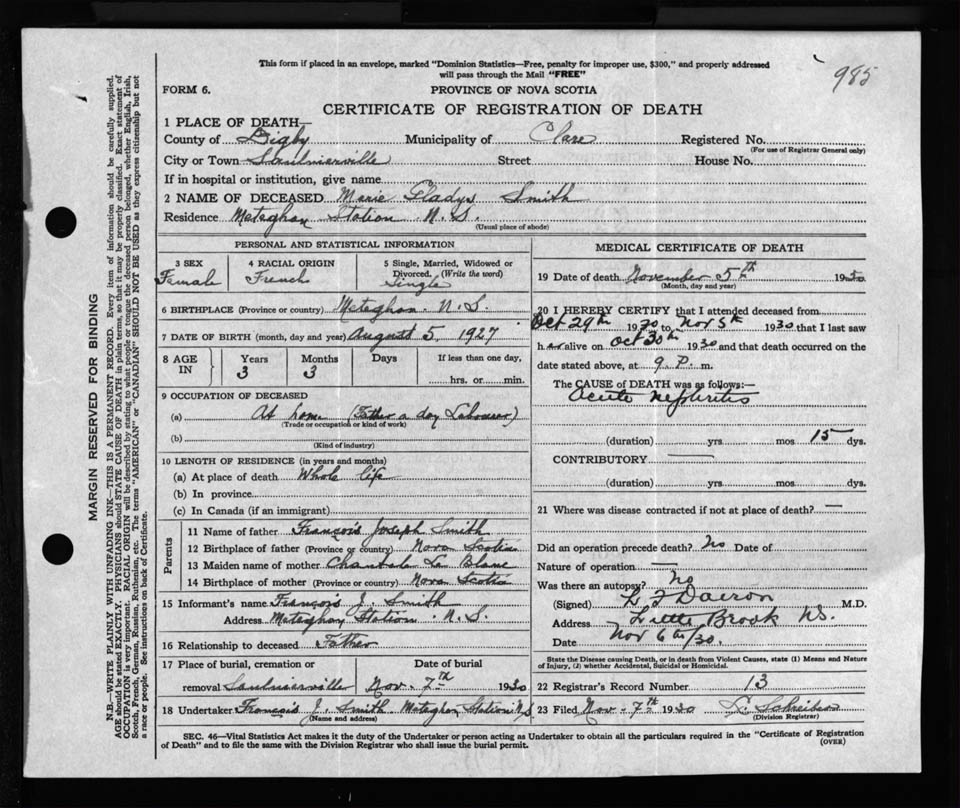 985
This form if placed in an envelope, marked "Dominion Statistics—Free, penalty for improper use, $300," and properly addressed
will pass through the Mail "FREE"
FORM 6.
PROVINCE OF NOVA SCOTIA
CERTIFICATE OF REGISTRATION OF DEATH
1 PLACE OF DEATH—
County of Digby Municipality of Clare Registered No.
(For use of Registrar General only)
City or Town Saulnierville Street House No.
If in hospital or institution, give name
2 NAME OF DECEASED Marie Gladys Smith
Residence Meteghan Station N.S.
(Usual place of abode)
PERSONAL AND STATISTICAL INFORMATION
3 SEX 4 RACIAL ORIGIN 5 Single, Married, Widowed or
Divorced. (Write the word)
Female French Single
6 BIRTHPLACE (Province or country) Meteghan N.S.
7 DATE OF BIRTH (month, day and year) August 5, 1927
8 AGE IN Years Months Days If less than one day,
3 3 hrs. or min.
9 OCCUPATION OF DECEASED
(a) At home (Father a day Labourer)
(Trade or occupation or kind of work)
(b)
(Kind of industry)
10 LENGTH OF RESIDENCE (in years and months)
(a) At place of death Whole life
(b) In province
(c) In Canada (if an immigrant)
Parents
11 Name of father François Joseph Smith
12 Birthplace of father (Province or country) Nova Scotia
13 Maiden name of mother Le Blanc
14 Birthplace of mother (Province or country) Nova Scotia
15 Informant's name François J. Smith
Address Meteghan Station N.S.
16 Relationship to deceased Father
17 Place of burial, cremation or Date of burial
removal Saulnierville Nov. 7th 1930
18 Undertaker François J. Smith Meteghan Station N.S.
(Name and address)
MEDICAL CERTIFICATE OF DEATH
19 Date of death November 5th 1930
(Month, day and year)
20 I HEREBY CERTIFY that I attended deceased from
Oct 29th 1930 to Nov 5th 1930 that I last saw
her alive on Oct 30th 1930 and that death occurred on the
date stated above, at 9 P. m.
The CAUSE OF DEATH was as follows:—
Acute Nephritis
(duration) yrs. mos 15 dys.
CONTRIBUTORY
(duration) yrs. mos. dys.
21 Where was disease contracted if not at place of death?
Did an operation precede death? No Date of
Nature of operation
Was there an autopsy? No
(Signed) M.D.
Address Little Brook NS.
Date Nov 6th/30.
State the Disease causing Death, or in death from Violent Causes, state (1) Means and Nature
of Injury, (2) whether Accidental, Suicidal or Homicidal.
22 Registrar's Record Number 13
23 Filed Nov. 7th 1930
(Division Registrar)
SEC. 46—Vital Statistics Act makes it the duty of the Undertaker or person acting as Undertaker to obtain all the particulars required in the "Certificate of Registration
of Death" and to file the same with the Division Registrar who shall issue the burial permit.
(OVER)
MARGIN RESERVED FOR BINDING
N.B.—WRITE PLAINLY WITH UNFADING INK—THIS IS A PERMANENT RECORD. Every item of information should be carefully supplied.
AGE should be stated EXACTLY. PHYSICIANS should STATE CAUSE OF DEATH in plain terms, so that it may be properly classified. Exact statement of
OCCUPATION is very important. RACIAL ORIGIN will be described by stating to what people or tongue the deceased person belonged, whether English, Irish,
Scotch, French, German, Russian, Ruthenian, etc. The terms "AMERICAN" or "CANADIAN" SHOULD NOT BE USED as they express citizenship but not
a race or people. See instructions on back of Certificate.